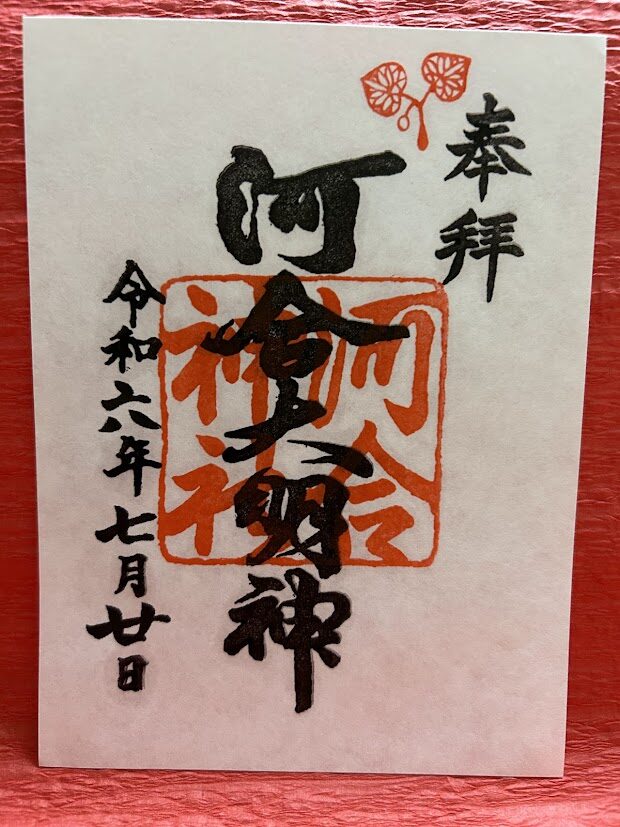 奉拝
河合大明神
河合神社
令和六年七月廿日